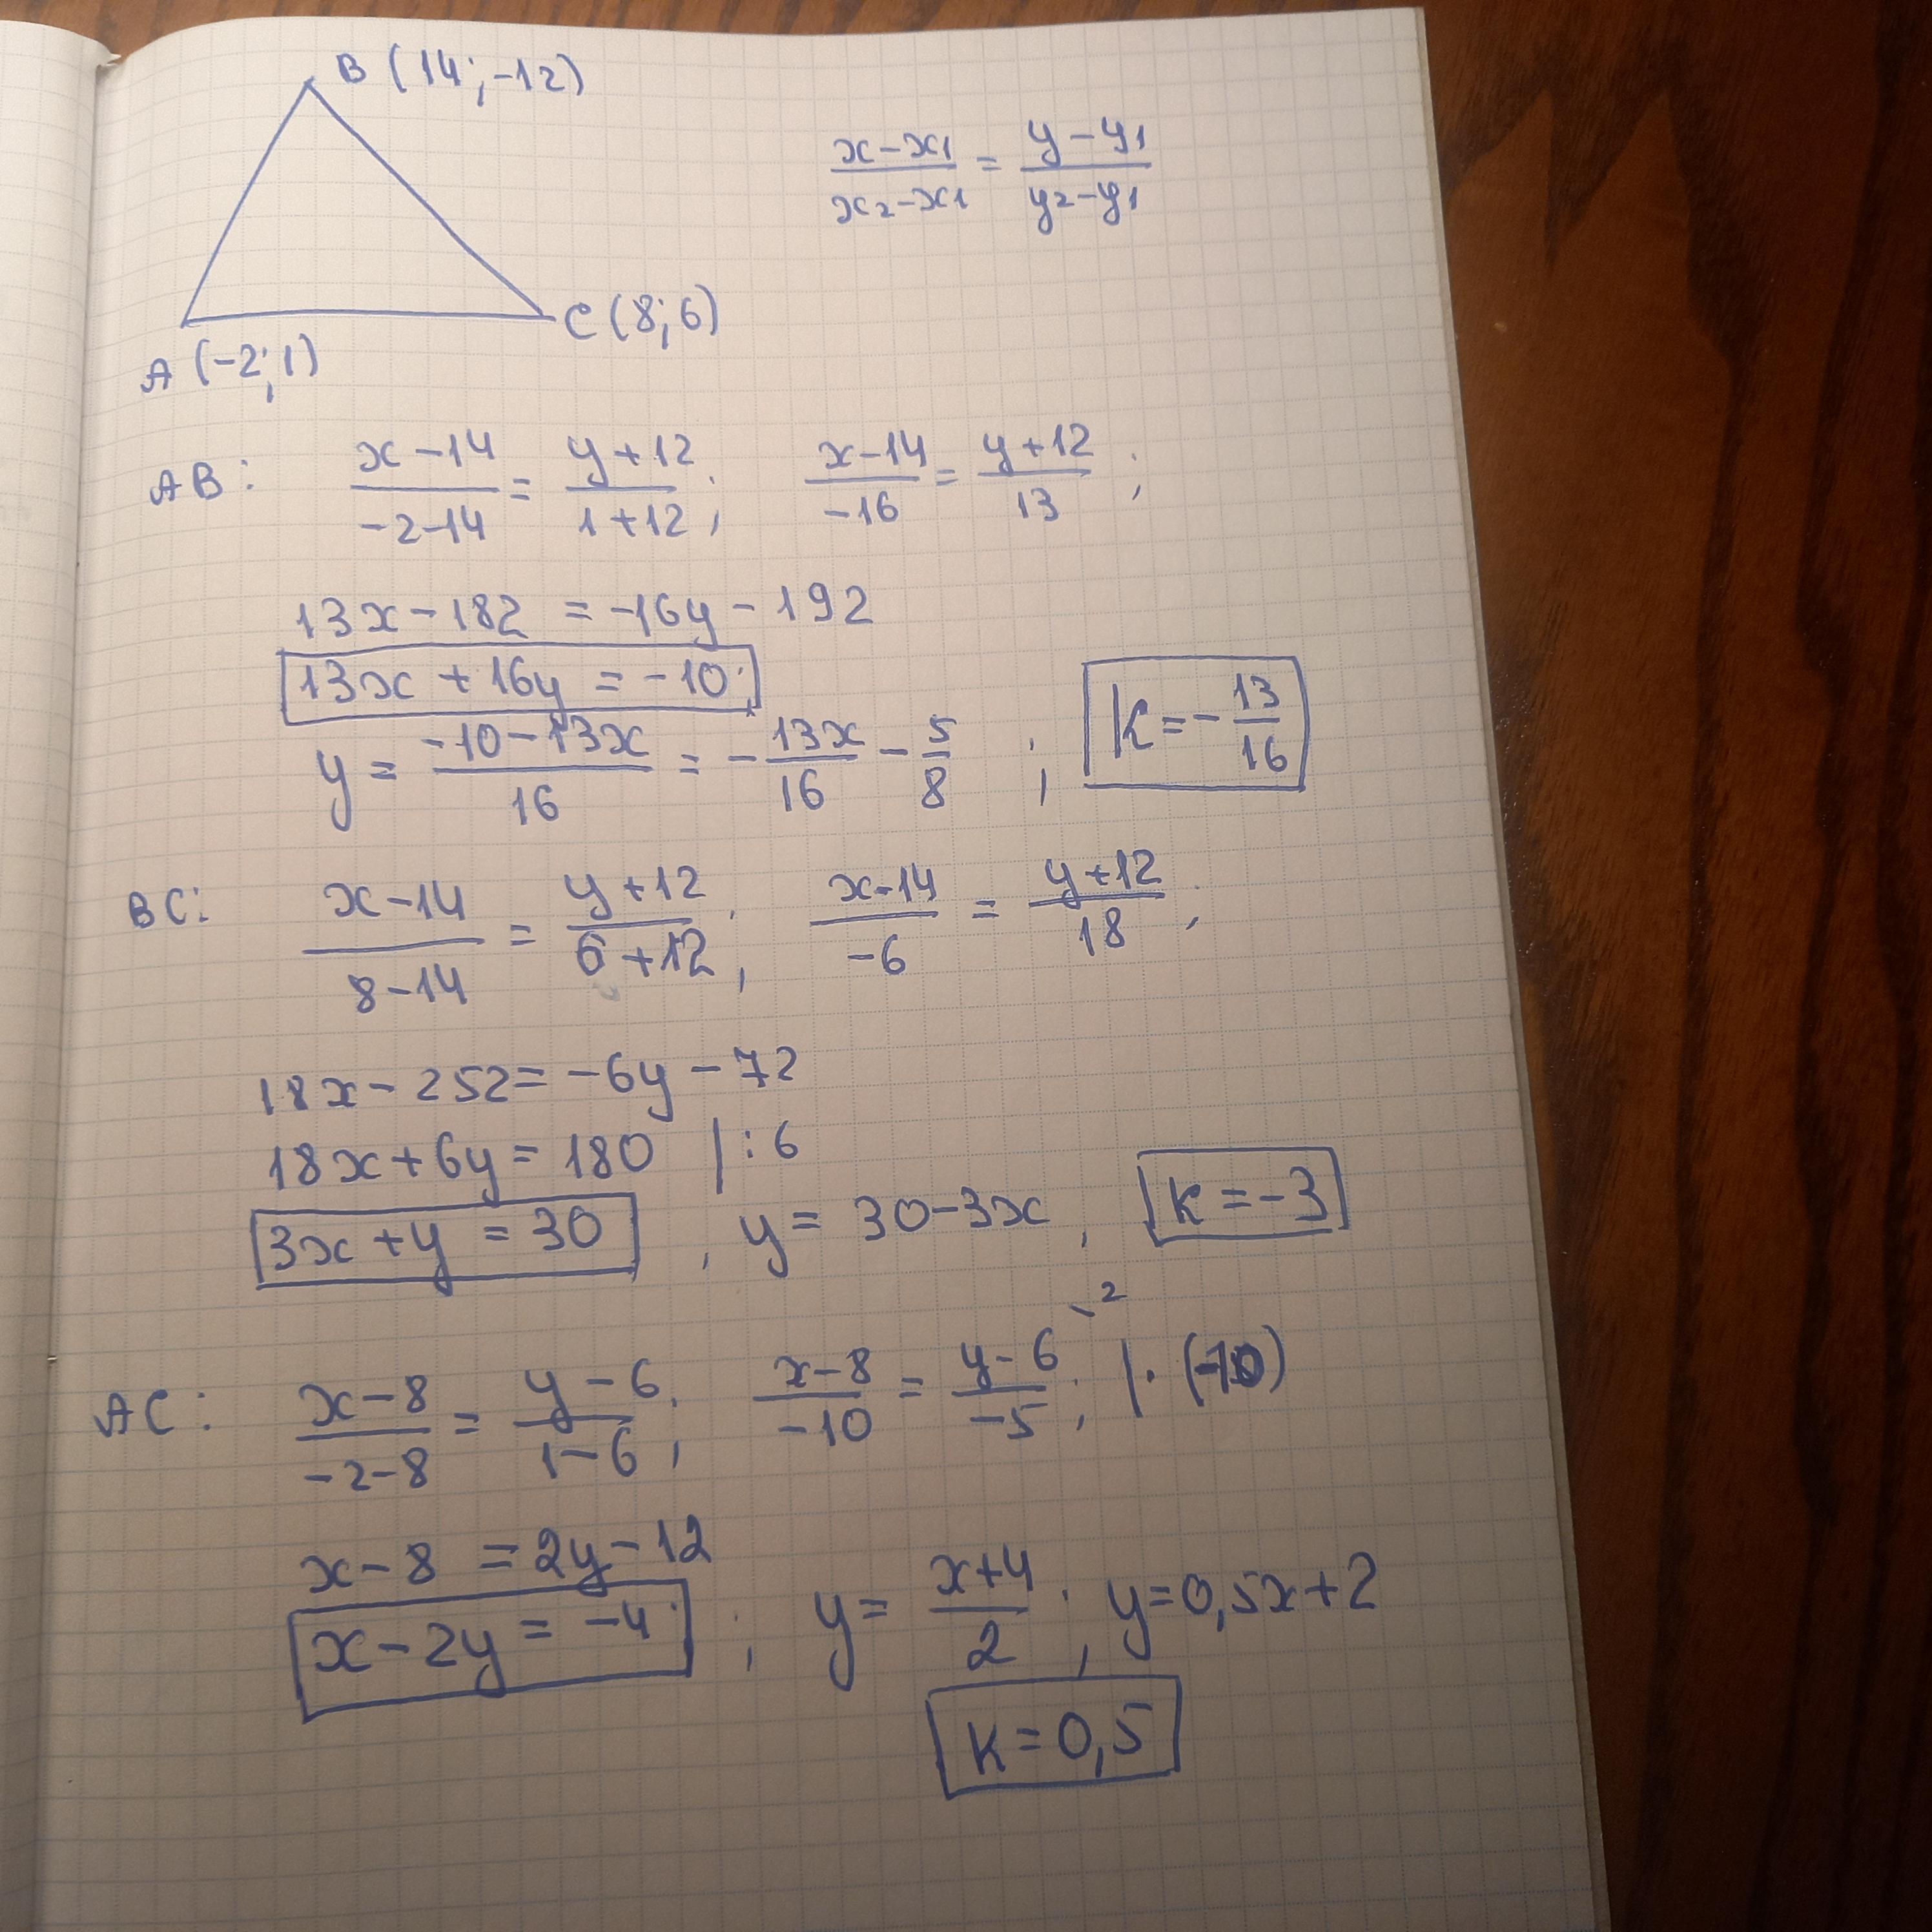 B (14; -12)
(x-x1)/(x2-x1) = (y-y1)/(y2-y1)
C (8; 6)
A (-2; 1)
AB: (x-14)/(-2-14) = (y+12)/(1+12); (x-14)/(-16) = (y+12)/13;
13x - 182 = -16y - 192
13x + 16y = -10;
y = (-10-13x)/16 = - 13x/16 - 5/8 ; K = - 13/16
BC: (x-14)/(8-14) = (y+12)/(6+12); (x-14)/(-6) = (y+12)/18;
18x - 252 = -6y - 72
18x + 6y = 180 | : 6
3x + y = 30 , y = 30-3x , K = -3
AC: (x-8)/(-2-8) = (y-6)/(1-6); (x-8)/(-10) = (y-6)\2/(-5); | · (-10)
x - 8 = 2y - 12
x - 2y = -4 ; y = (x+4)/2 ; y = 0,5x + 2
K = 0,5